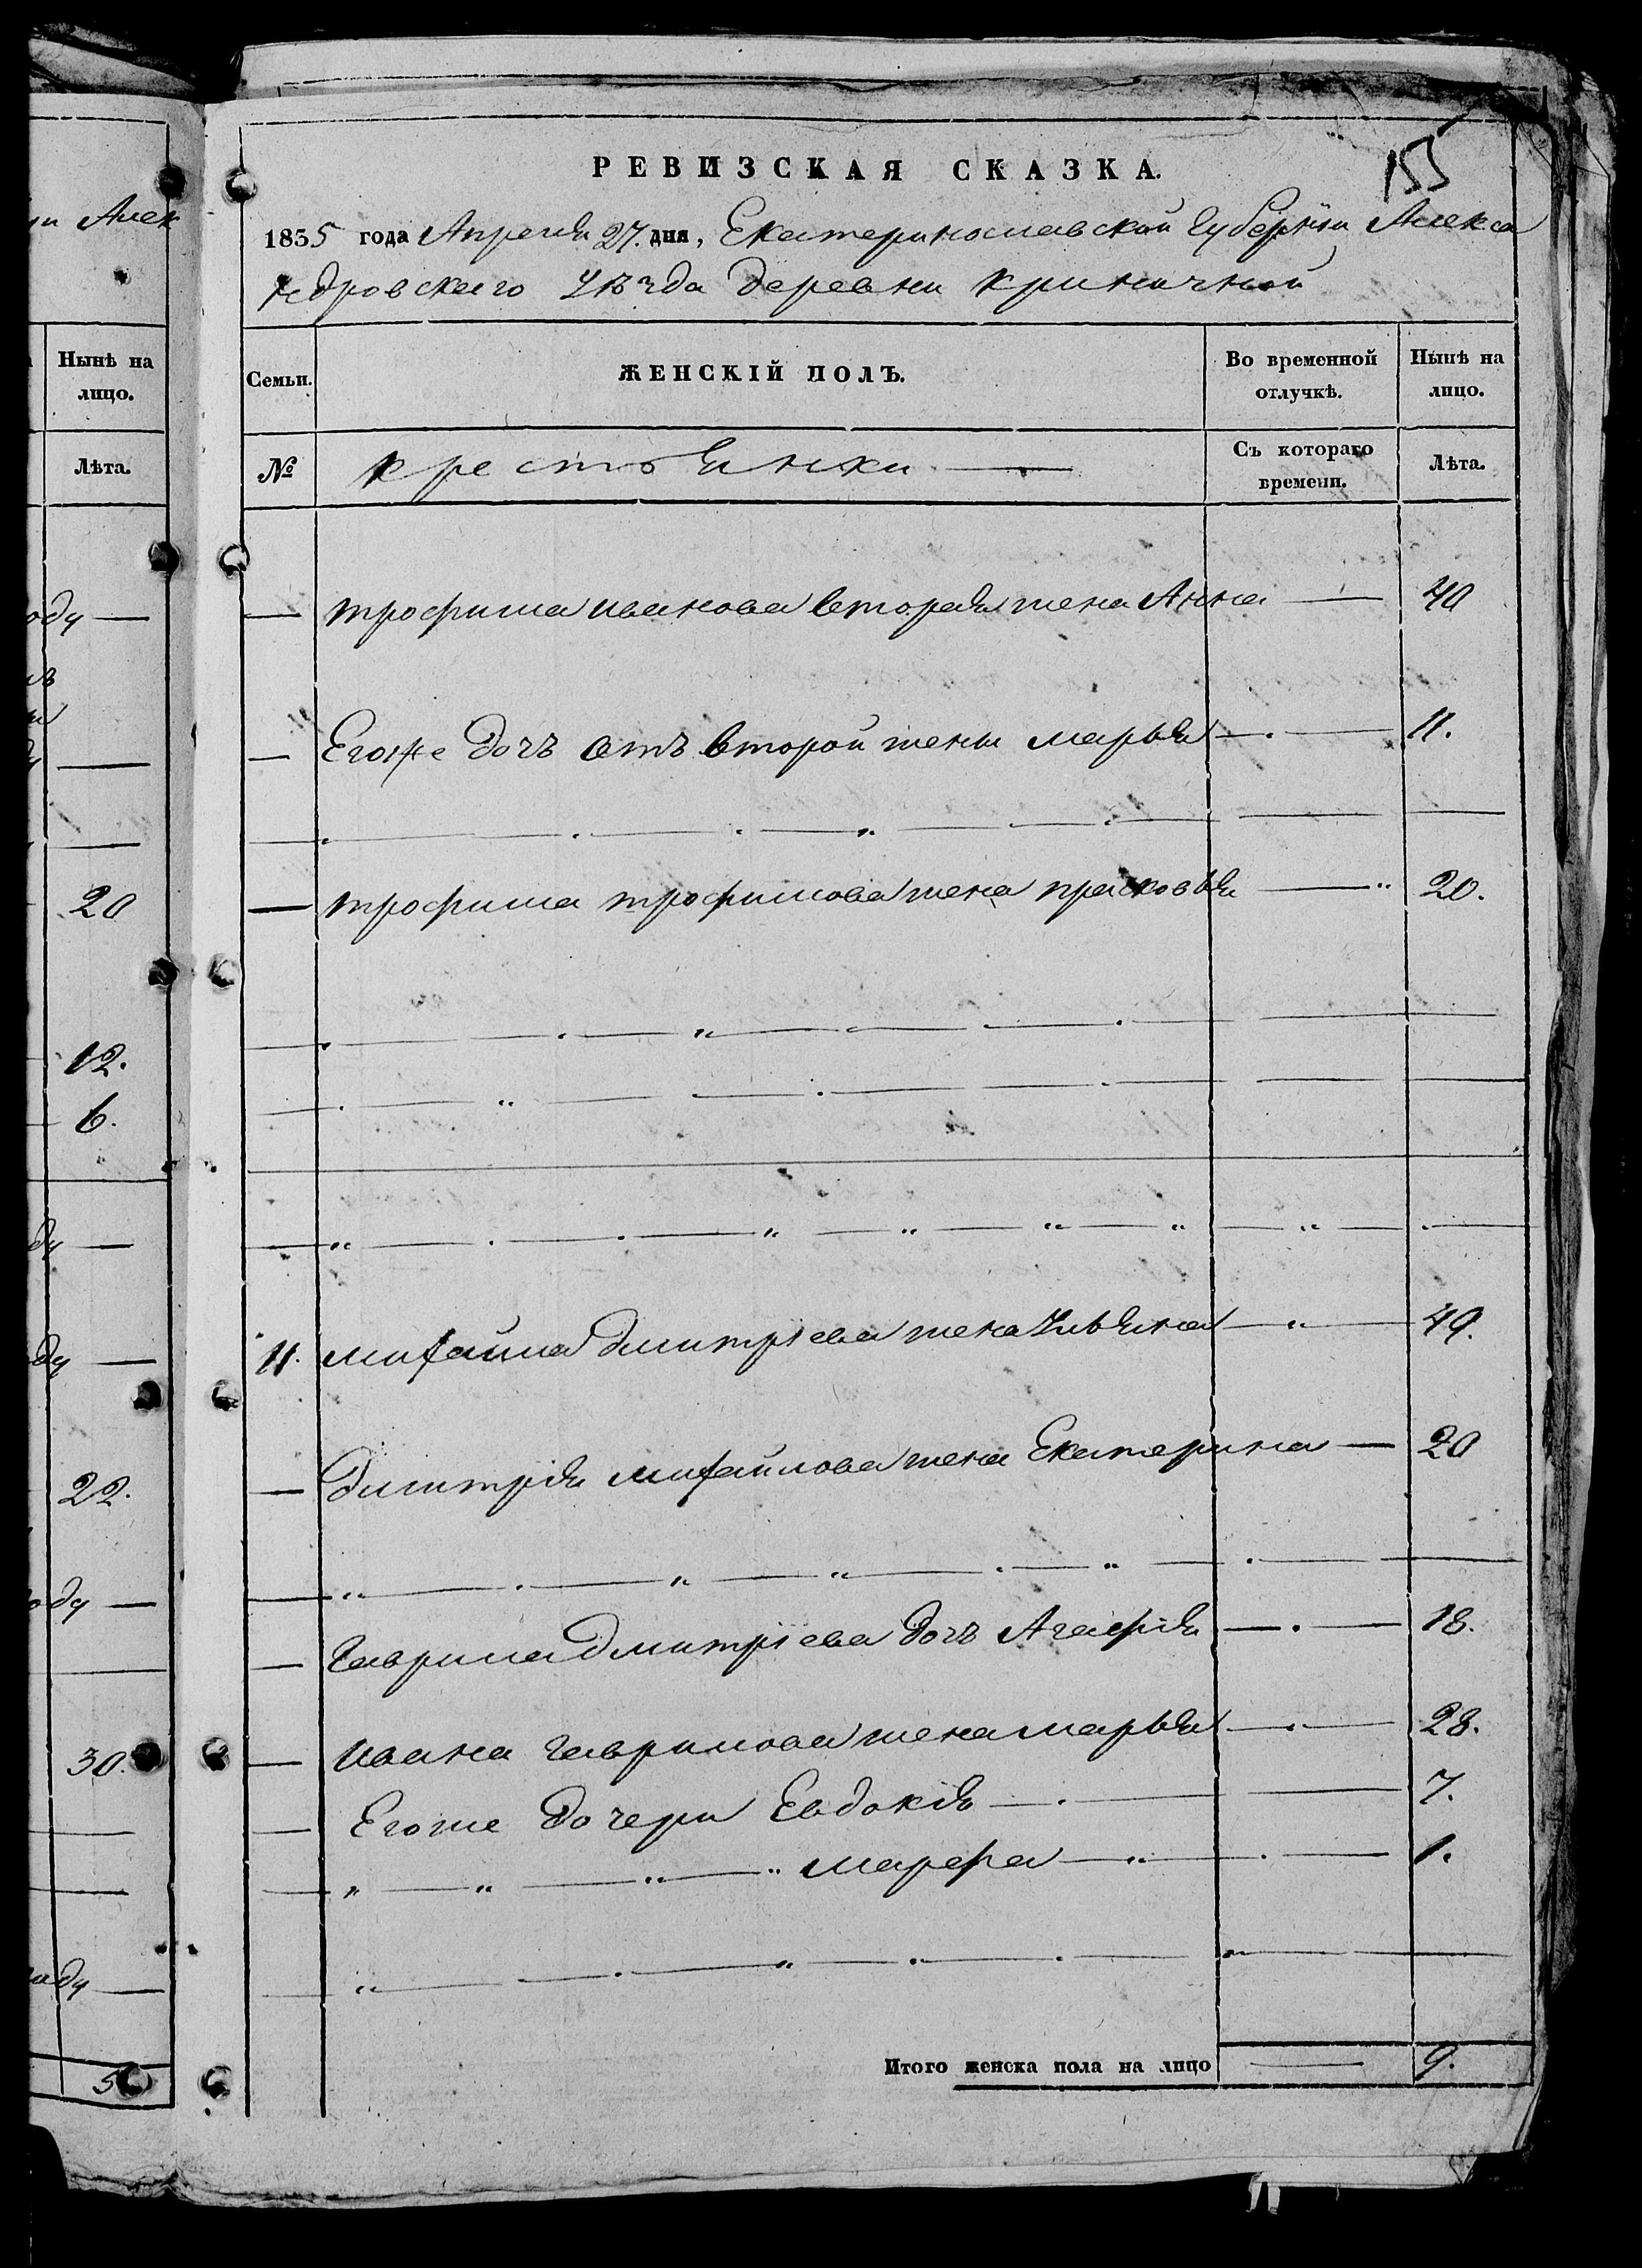 155
РЕВИЗСКАЯ СКАЗКА.
1835 года Апреля 27. дня, Екатеринославской Губерніи Алекса
ндровскаго Уѣзда деревни криничной
Семьи.
ЖЕНСКІЙ ПОЛЪ.
Во временной отлучкѣ.
Нынѣ на лицо.
№
крестьянки
Съ котораго времени.
Лѣта.
— трофима иванова вторая жена Анна — 40
— Егоже дочъ отъ второй жены марья — 11.
— трофима трофимова жена прасковья — 20.
11. михайла дмитріева жена Ульяна — 49.
— Дмитрія михайлова жена Екатерина — 20
— Гаврила дмитріева дочъ Агафія — 18.
— ивана гаврилова жена марья — 28.
— Егоже дочери Евдокія — 7.
— марфа — 1.
Итого женска пола на лицо — 9.
и Алек
Нынѣ на лицо.
Лѣта.
оду —
20
12.
6.
ду —
ду —
22.
оду —
30.
оду —
5